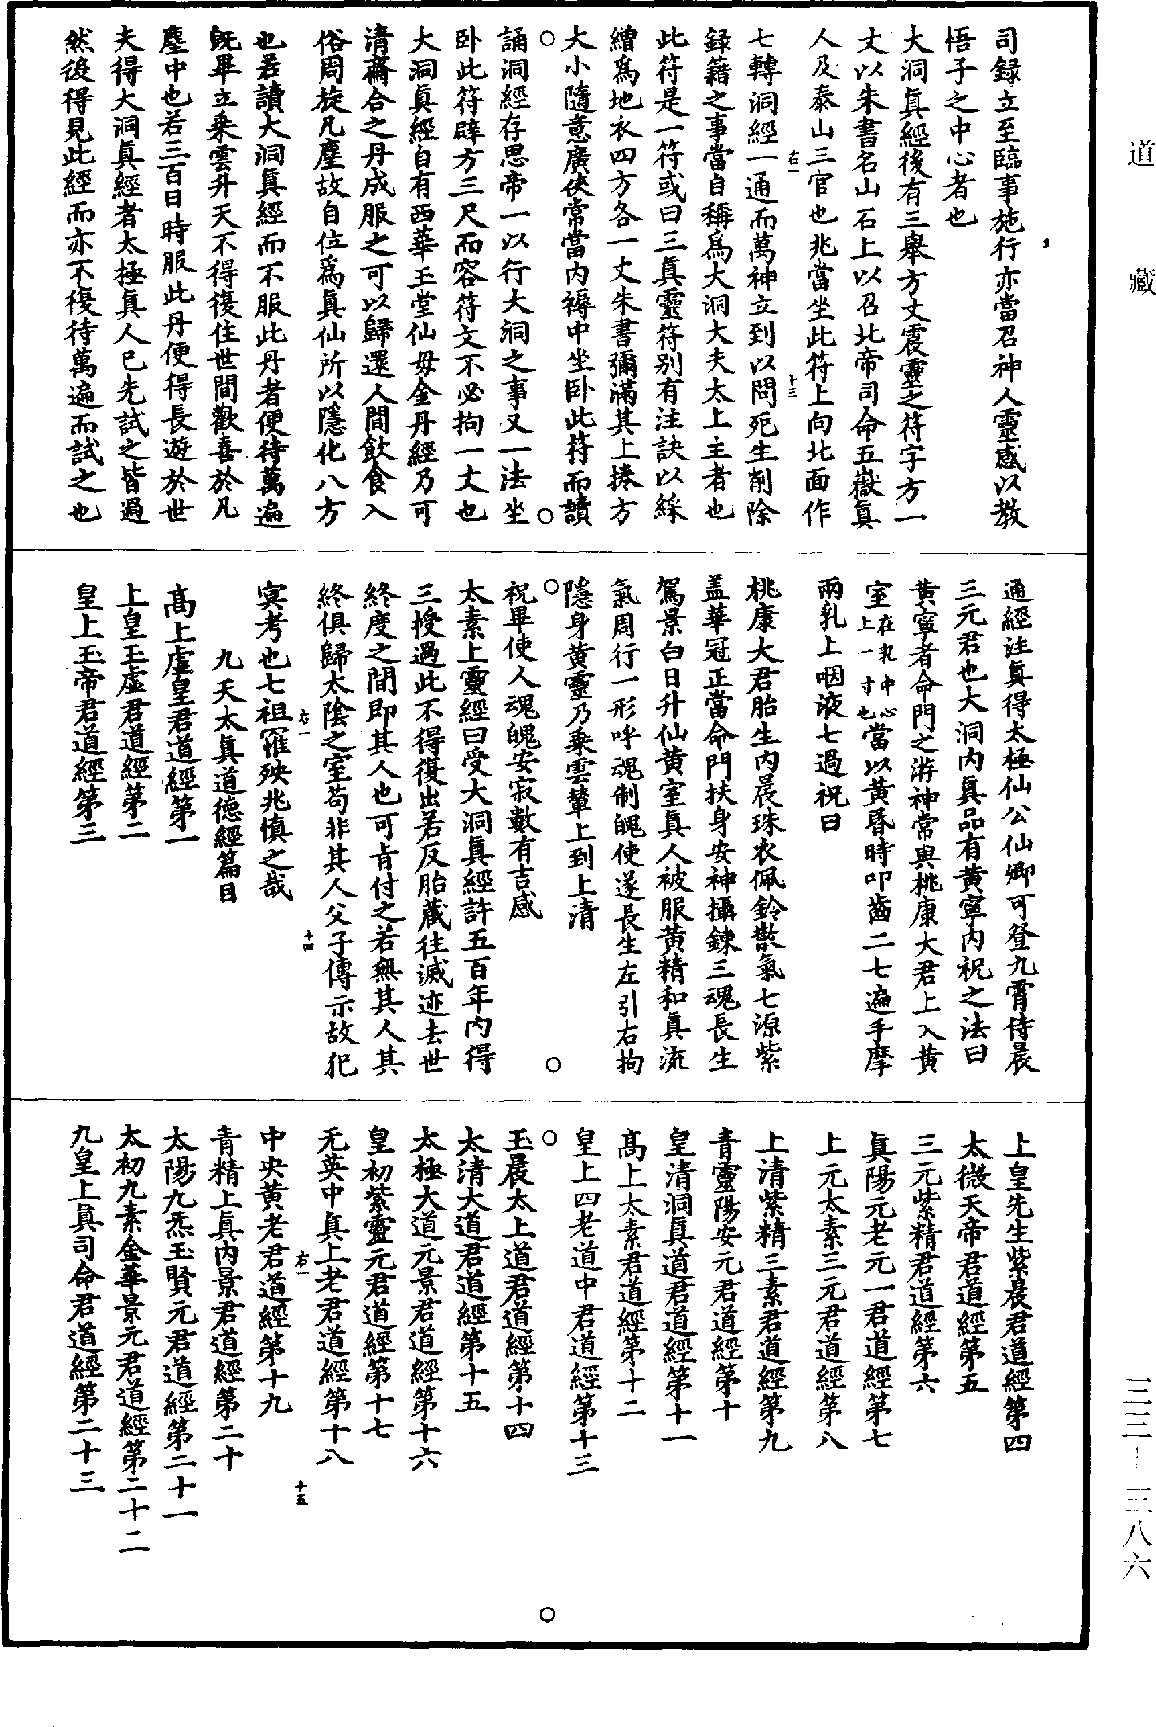 道藏
司録立至臨事施行亦當召神人靈感以教
悟子之中心者也
大洞眞經後有三舉方丈震靈之符字方一
丈以朱書名山石上以召北帝司命五嶽眞
人及泰山三官也兆當坐此符上向北面作
右一
十三
七轉洞經一通而萬神立到以問死生削除
録籍之事當自稱爲大洞大夫太上主者也
此符是一符或曰三眞靈符別有注訣以綵
繒爲地衣四方各一丈朱書彌滿其上捲方
大小隨意廣俠常當內褥中坐卧此符而讀
誦洞經存思帝一以行大洞之事又一法坐
卧此符辟方三尺而容符文不必拘一丈也
大洞眞經自有西華玉堂仙母金丹經乃可
清齋合之丹成服之可以歸還人間飲食入
俗周旋凡塵故自位爲眞仙所以隱化八方
也若讀大洞眞經而不服此丹者便待萬遍
旣畢立乘雲升天不得復住世間歡喜於凡
塵中也若三百日時服此丹便得長遊於世
夫得大洞眞經者太極眞人已先試之皆過
然後得見此經而亦不復待萬遍而試之也
通經注眞得太極仙公仙卿可登九霄侍晨
三元君也大洞內眞品有黃寧內祝之法曰
黃寧者命門之游神常與桃康大君上入黃
室在兆中心上一寸也當以黃昏時叩齒二七遍手摩
兩乳上咽液七過祝曰
桃康大君胎生內晨珠衣佩鈴散氣七源紫
盖華冠正當命門扶身安神攝錬三魂長生
駕景白日升仙黃室眞人被服黃精和眞流
氣周行一形呼魂制魄使遂長生左引右拘
隱身黃靈乃乘雲輦上到上清
祝畢使人魂魄安寂數有吉感
太素上靈經曰受大洞眞經許五百年內得
三授過此不得復出若反胎藏往滅迹去世
終度之間即其人也可肯付之若無其人其
終俱歸太陰之室苟非其人父子傳示故犯
右一
十四
冥考也七祖罹殃兆慎之哉
九天太眞道德經篇目
高上虛皇君道經第一
上皇玉虛君道經第二
皇上玉帝君道經第三
上皇先生紫晨君道經第四
太微天帝君道經第五
三元紫精君道經第六
眞陽元老元一君道經第七
上元太素三元君道經第八
上清紫精三素君道經第九
青靈陽安元君道經第十
皇清洞眞道君道經第十一
高上太素君道經第十二
皇上四老道中君道經第十三
玉晨太上道君道經第十四
太清大道君道經第十五
太極大道元景君道經第十六
皇初紫靈元君道經第十七
无英中眞上老君道經第十八
右一
十五
中央黃老君道經第十九
青精上眞內景君道經第二十
太陽九炁玉賢元君道經第二十一
太初九素金華景元君道經第二十二
九皇上眞司命君道經第二十三
三三—三八六